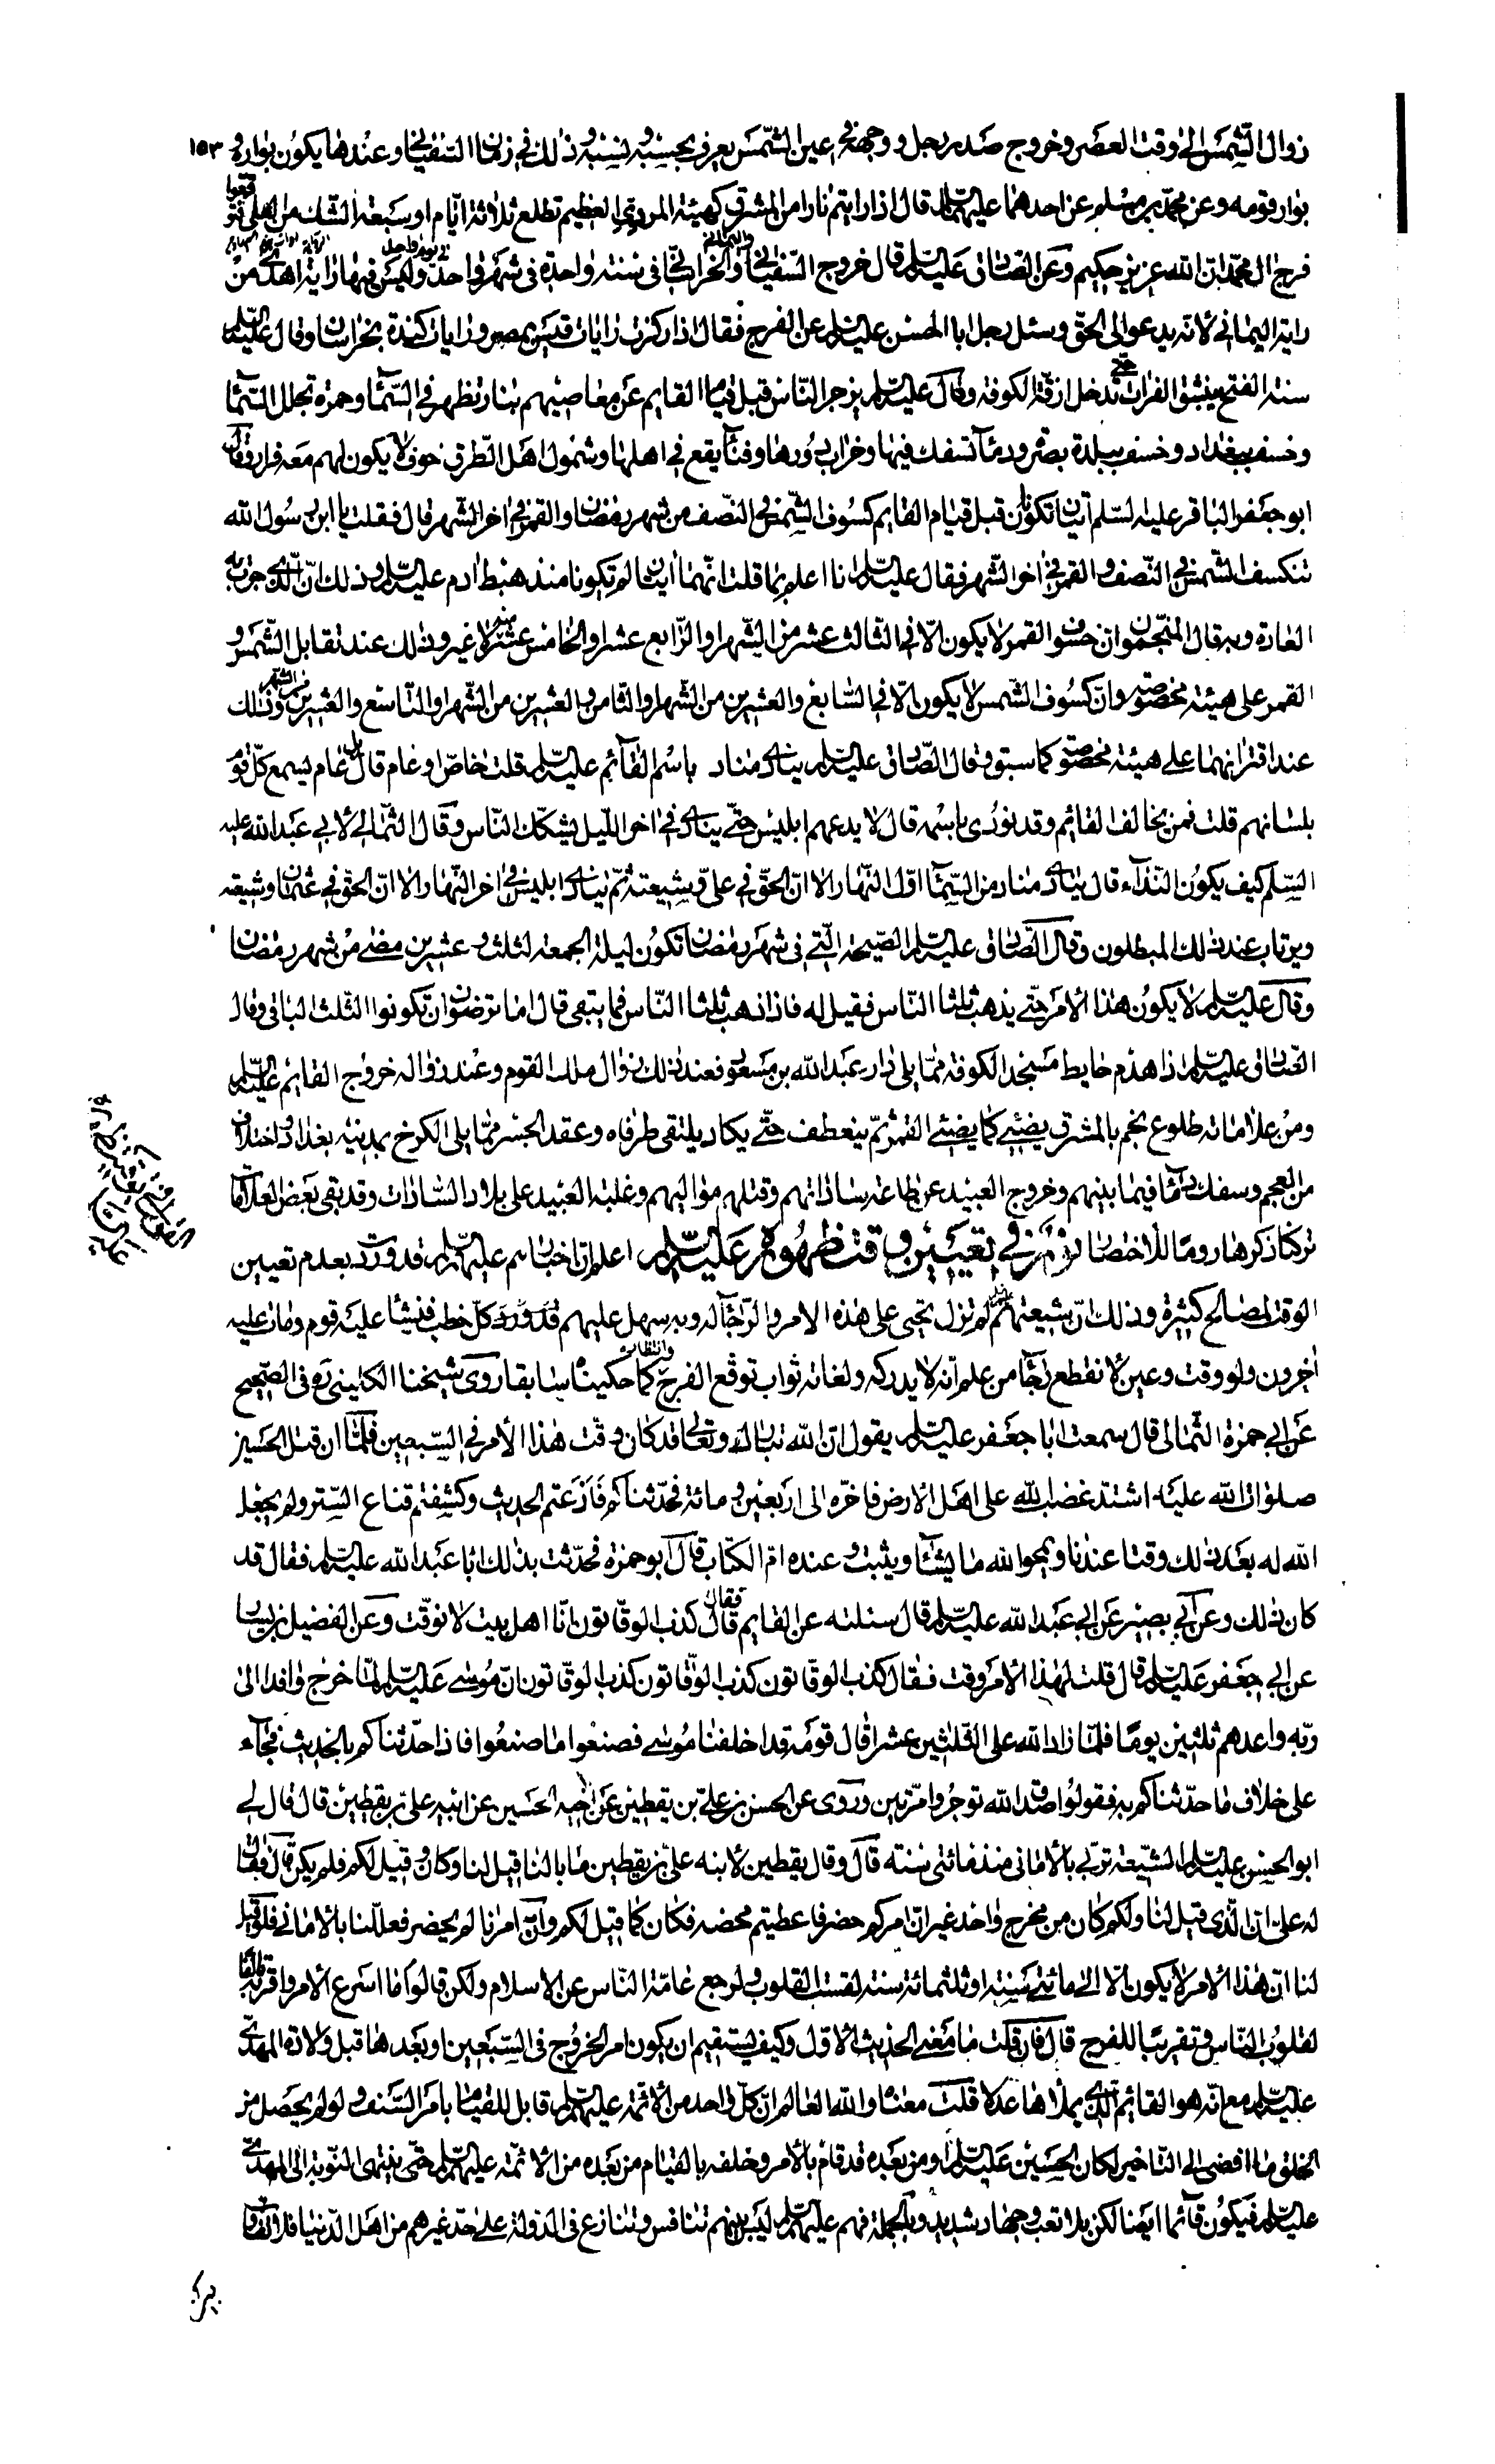 زوال الشمس الى وقت العصر وخروج صدر رجل ووجهه في عين الشمس يعرف بحسبه ونسبه وذلك في زمان السفياني وعندها يكون بواره و ١٥٣
بوار قومه وعن محمد بن مسلم عن احدهما عليهما السلام قال اذا رايتم نارا من المشرق كهيئة المردي العظيم تطلع ثلاثة ايام او سبعة الشك من فتوقعوا
فرج ال محمد ان الله عزيز حكيم وعن الصادق عليه السلام قال خروج السفياني والخراساني واليماني في سنة واحدة في شهر واحد في يوم واحد وليس فيها راية اهدى من
راية اليماني لانه يدعو الى الحق وسئل رجل ابا الحسن عليه السلام عن الفرج فقال اذا ركزت رايات قيس بمصر ورايات كندة بخراسان وقال عليه السلم
سنة الفتح ينبثق الفرات حتى تدخل ازقة الكوفة وقال عليه السلام يزجر الناس قبل قيام القايم عن معاصيهم بنار تظهر في السماء وحمرة تجلل السماء
وخسف ببغداد وخسف ببلدة بصرة ودماء تسفك فيها وخراب دورها وفناء يقع في اهلها وشمول اهل العراق خوف لا يكون لهم معه قرار وقال
ابو جعفر الباقر عليه السلم آيتان تكونان قبل قيام القايم كسوف الشمس في النصف من شهر رمضان والقمر في اخر الشهر قال فقلت يا ابن رسول الله
تنكسف الشمس في النصف والقمر في اخر الشهر فقال عليه السلام انا اعلم بما قلت انهما ايتان لم تكونا منذ هبط ادم عليه السلام وذلك ان الذي جرت به
العادة وبه قال المنجمون ان خسوف القمر لا يكون الا في الثالث عشر من الشهر او الرابع عشر او الخامس عشر منه لا غير وذلك عند تقابل الشمس و
القمر على هيئة مخصوصة وان كسوف الشمس لا يكون الا في السابع والعشرين من الشهر او الثامن والعشرين من الشهر او التاسع والعشرين من الشهر وذلك
عند اقترانهما على هيئة مخصوصة كما سبق وقال الصادق عليه السلام ينادى مناد باسم القائم عليه السلام قلت خاص او عام قال بل عام يسمع كل قوم
بلسانهم قلت فمن يخالف القائم وقد نودى باسمه قال لا يدعهم ابليس حتى ينادى في اخر الليل يشكك الناس وقال الثمالي لابي عبد الله عليه
السلم كيف يكون النداء قال ينادى مناد من السماء اول النهار الا ان الحق في علي وشيعته ثم ينادى ابليس في اخر النهار الا ان الحق في عثمان وشيعته
ويرتاب عند ذلك المبطلون وقال الصادق عليه السلام الصيحة التي في شهر رمضان تكون ليلة الجمعة لثلث وعشرين مضى من شهر رمضان
وقال عليه السلام لا يكون هذا الامر حتى يذهب ثلثا الناس فقيل له فاذا ذهب ثلثا الناس فما يبقى قال اما ترضون ان تكونوا الثلث الباقي وقال
الصادق عليه السلام اذا هدم حايط مسجد الكوفة مما يلي دار عبد الله بن مسعود فعند ذلك زوال ملك القوم وعند زواله خروج القايم عليه السلم
ومن علاماته طلوع نجم بالمشرق يضيئ كما يضيئ القمر ثم ينعطف حتى يكاد يلتقى طرفاه وعقد الجسر مما يلى الكرخ بمدينة بغداد واختلاف
من العجم وسفك دماء فيما بينهم وخروج العبيد عن طاعة ساداتهم وقتلهم مواليهم وغلبة العبيد على بلاد السادات وقد بقى بعض العلامات
تركنا ذكرها روما للاختصار نور في تعيين وقت ظهوره عليه السلام اعلم ان اخبارهم عليهم السلام قد وردت بعدم تعيين
الوقت لمصالح كثيرة وذلك ان شيعتهم لم تزل تحيى على هذه الامر والرجاء له وبه سهل عليهم كل خطب فنشا عليه قوم ومات عليه
اخرون ولو وقت وعين لانقطع رجاء من علم انه لا يدركه ولفاته ثواب توقع الفرج وانتظاره كما حكيناه سابقا روى شيخنا الكليني ره في الصحيح
عن ابي حمزة الثمالى قال سمعت ابا جعفر عليه السلام يقول ان الله تبارك وتعالى قد كان وقت هذا الامر في السبعين فلما ان قتل الحسين
صلوات الله عليه اشتد غضب الله على اهل الارض فاخره الى اربعين ومائة فحدثناكم فاذعتم الحديث وكشفتم قناع الستر ولم يجعل
الله له بعد ذلك وقتا عندنا ويمحوا الله ما يشاء ويثبت وعنده ام الكتاب قال ابو حمزة فحدثت بذلك ابا عبد الله عليه السلام فقال قد
كان ذلك وعن ابي بصير عن ابي عبد الله عليه السلام قال سئلته عن القايم فقال كذب الوقاتون انا اهل بيت لا نوقت وعن الفضيل بن يسار
عن ابي جعفر عليه السلام قال قلت لهذا الامر وقت فقال كذب الوقاتون كذب الوقاتون كذب الوقاتون ان موسى عليه السلام لما خرج وافدا الى
ربه واعدهم ثلثين يوما فلما زاد الله على الثلثين عشرا قال قومه قد اخلفنا موسى فصنعوا ما صنعوا فاذا حدثناكم بالحديث فجاء
على خلاف ما حدثناكم به فقولوا صدق الله توجروا مرتين وروى عن الحسن بن علي بن يقطين عن اخيه الحسين عن ابيه علي بن يقطين قال قال لي
ابو الحسن عليه السلام الشيعة تربى بالاماني منذ مائتى سنة قال وقال يقطين لابنه علي بن يقطين ما بالنا قيل لنا وكان وقيل لكم فلم يكن قال فقال
له علي ان الذي قيل لنا ولكم كان من مخرج واحد غير ان امركم حضر فاعطيتم محضه فكان كما قيل لكم وان امرنا لم يحضر فعللنا بالاماني فلو قيل
لنا ان هذا الامر لا يكون الا الى مائتى سنة او ثلثمائة سنة لقست القلوب ولرجع عامة الناس عن الاسلام ولكن قالوا ما اسرع الامر واقربه تالفا
لقلوب الناس وتقريبا للفرج قال فان قلت ما معنى الحديث الاول وكيف يستقيم ان يكون امر الخروج في السبعين او بعدها قبل ولادة المهدى
عليه السلام مع انه هو القائم الذي يملاها عدلا قلت معناه والله العالم ان كل واحد من الائمة عليهم السلام قابل للقيام بامر السيف ولو لم يحصل من
الخلق ما افضى الى التاخير لكان الحسين عليه السلام او من بعده قد قام بالامر وخلفه بالقيام من بعده من الائمة عليهم السلام حتى ينتهى النوبة الى المهدى
عليه السلام فيكون قائما ايضا لكن بلا تعب وجهاد شديد وبالجملة فهم عليهم السلام ليس بينهم تنافس وتنازع في الدولة على حد غيرهم من اهل الدنيا فلا